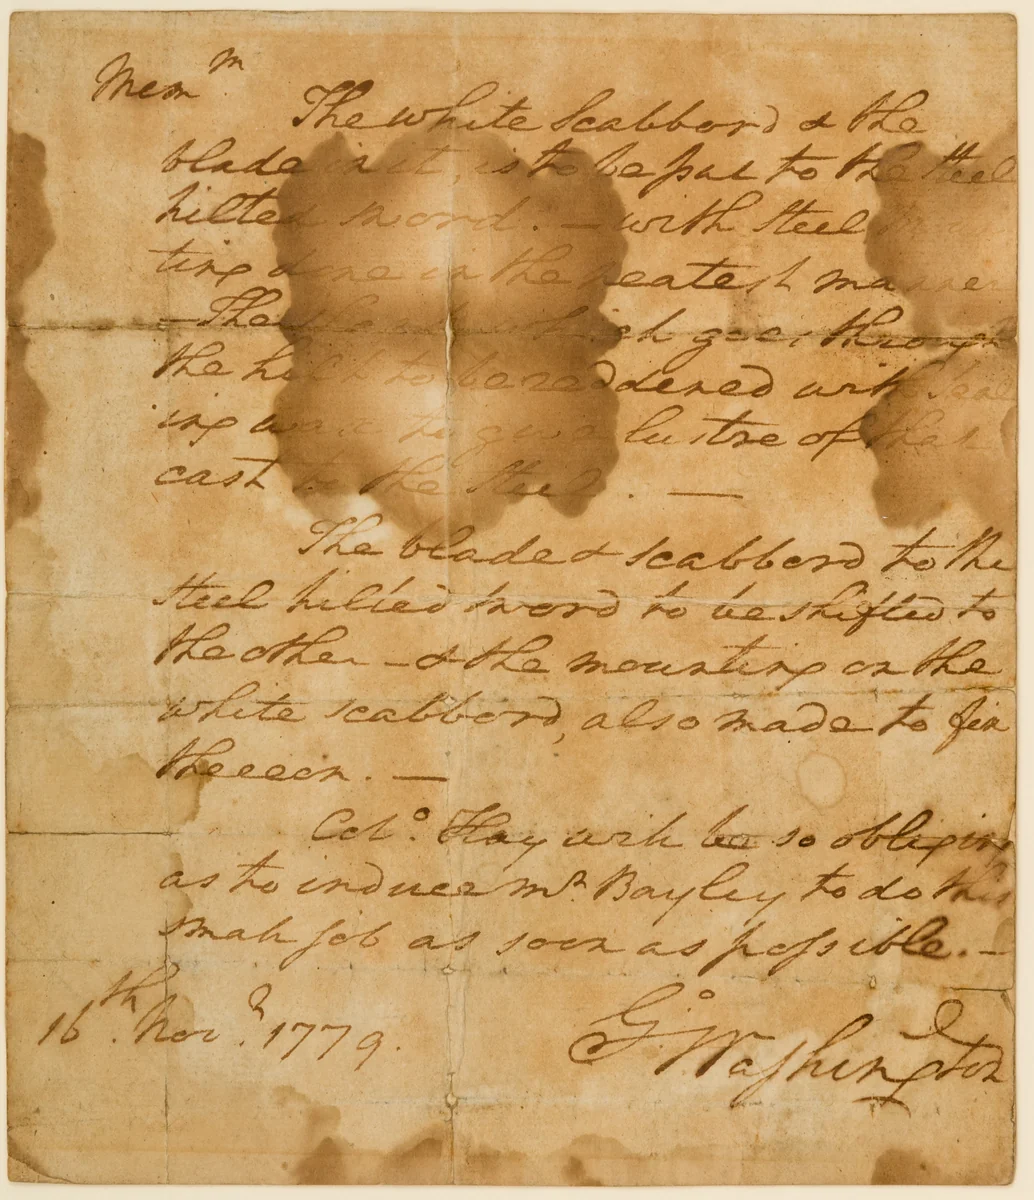 Mem.m
The white Scabbord & the
blade in it, is to be put to the steel
hilted sword. — with steel
ting done in the neatest manner
— The which goes through
the hilt to be reddened with Seal
ing wax to give lustre of that
cast to the steel. —
The blade & scabbord to the
steel hilted sword to be shifted to
the other — & the mounting on the
white scabbord, also made to fix
thereon. —
Colo. Hay will be so obliging
as to induce Mr. Bayley to do this
small job as soon as possible. —
16th. Novr. 1779.
Go. Washington